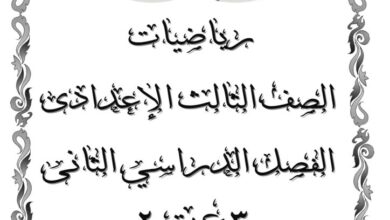 رياضيات
الصف الثالث الإعدادى
الفصل الدراسي الثانى